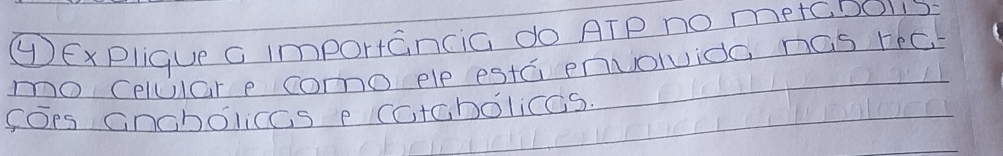 4) Explique a importância do ATP no metabolis-
mo celular e como ele está envolvida nas rea-
ções anabólicas e catabólicas.